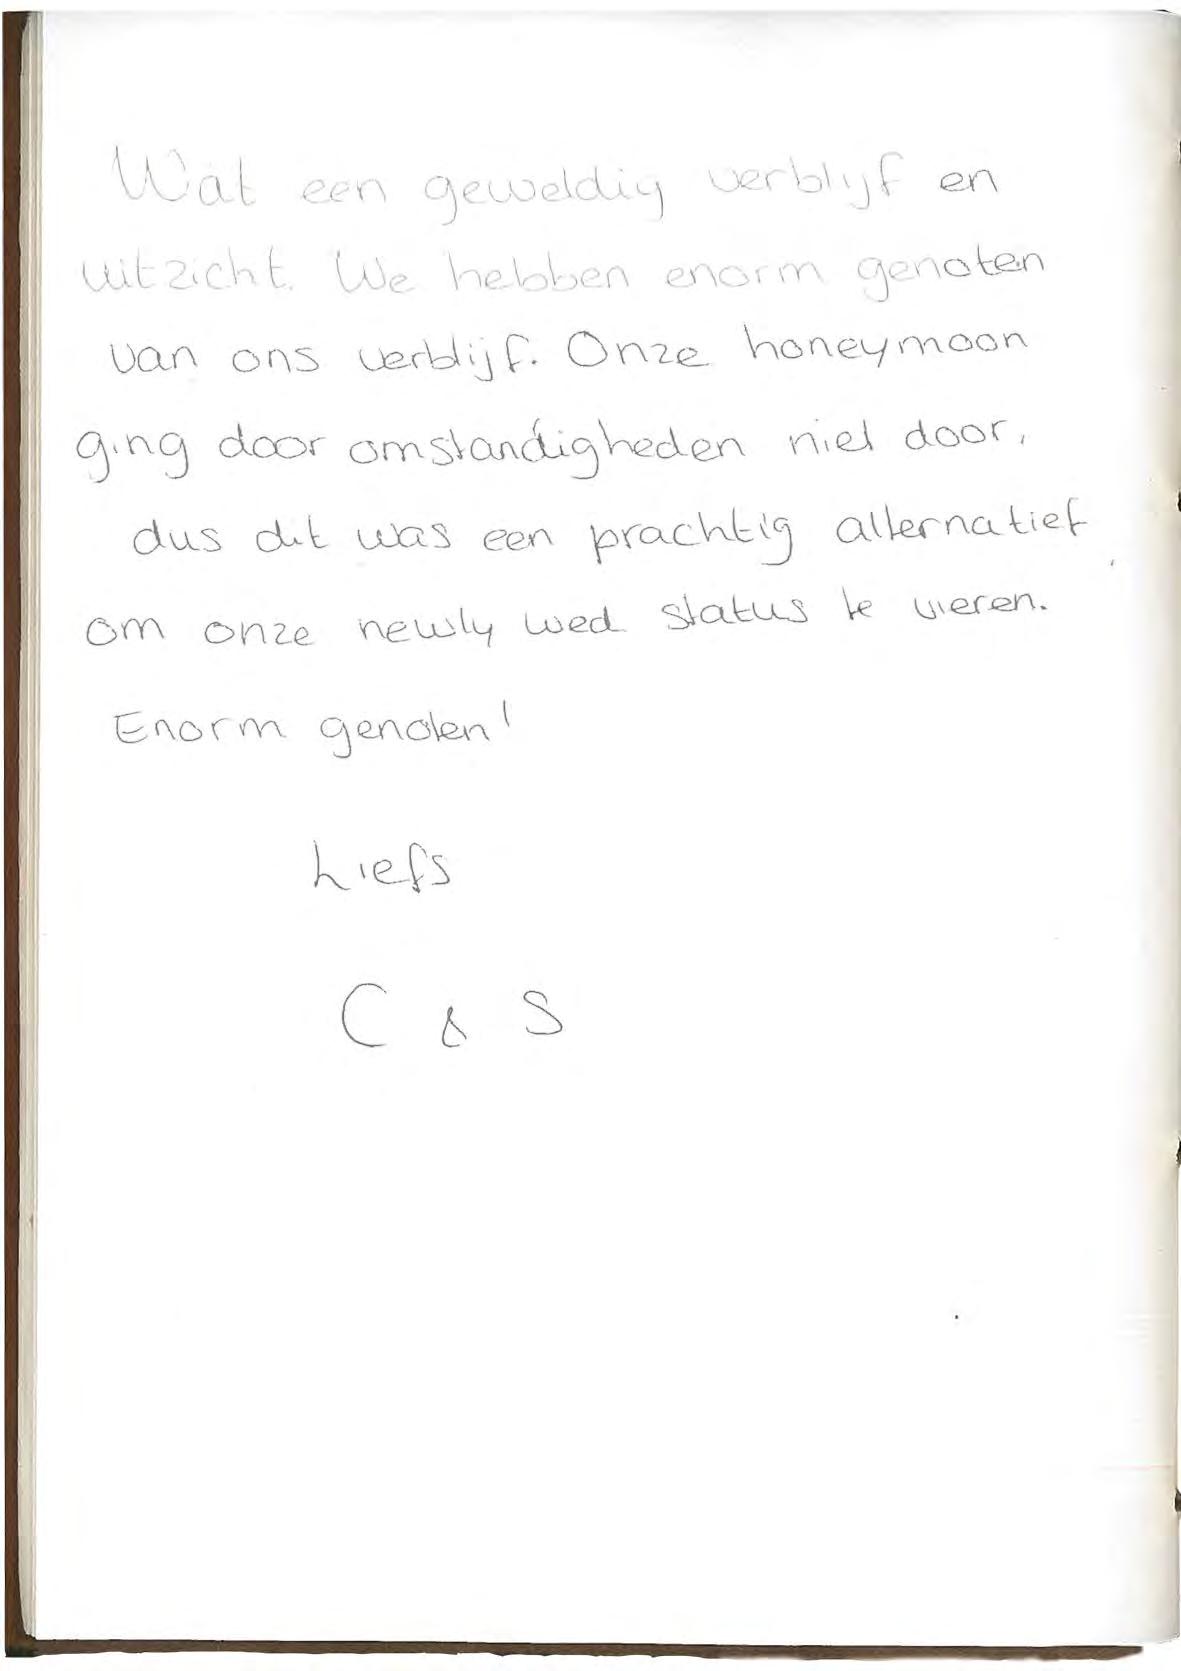 Wat een geweldig verblijf en
uitzicht. We hebben enorm genoten
van ons verblijf. Onze honeymoon
ging door omstandigheden niet door,
dus dit was een prachtig alternatief
om onze newly wed status te vieren.
Enorm genoten!
Liefs
C & S